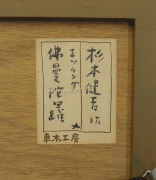 杉本健吉作
エッチング
佛曼陀羅
九
車木工房